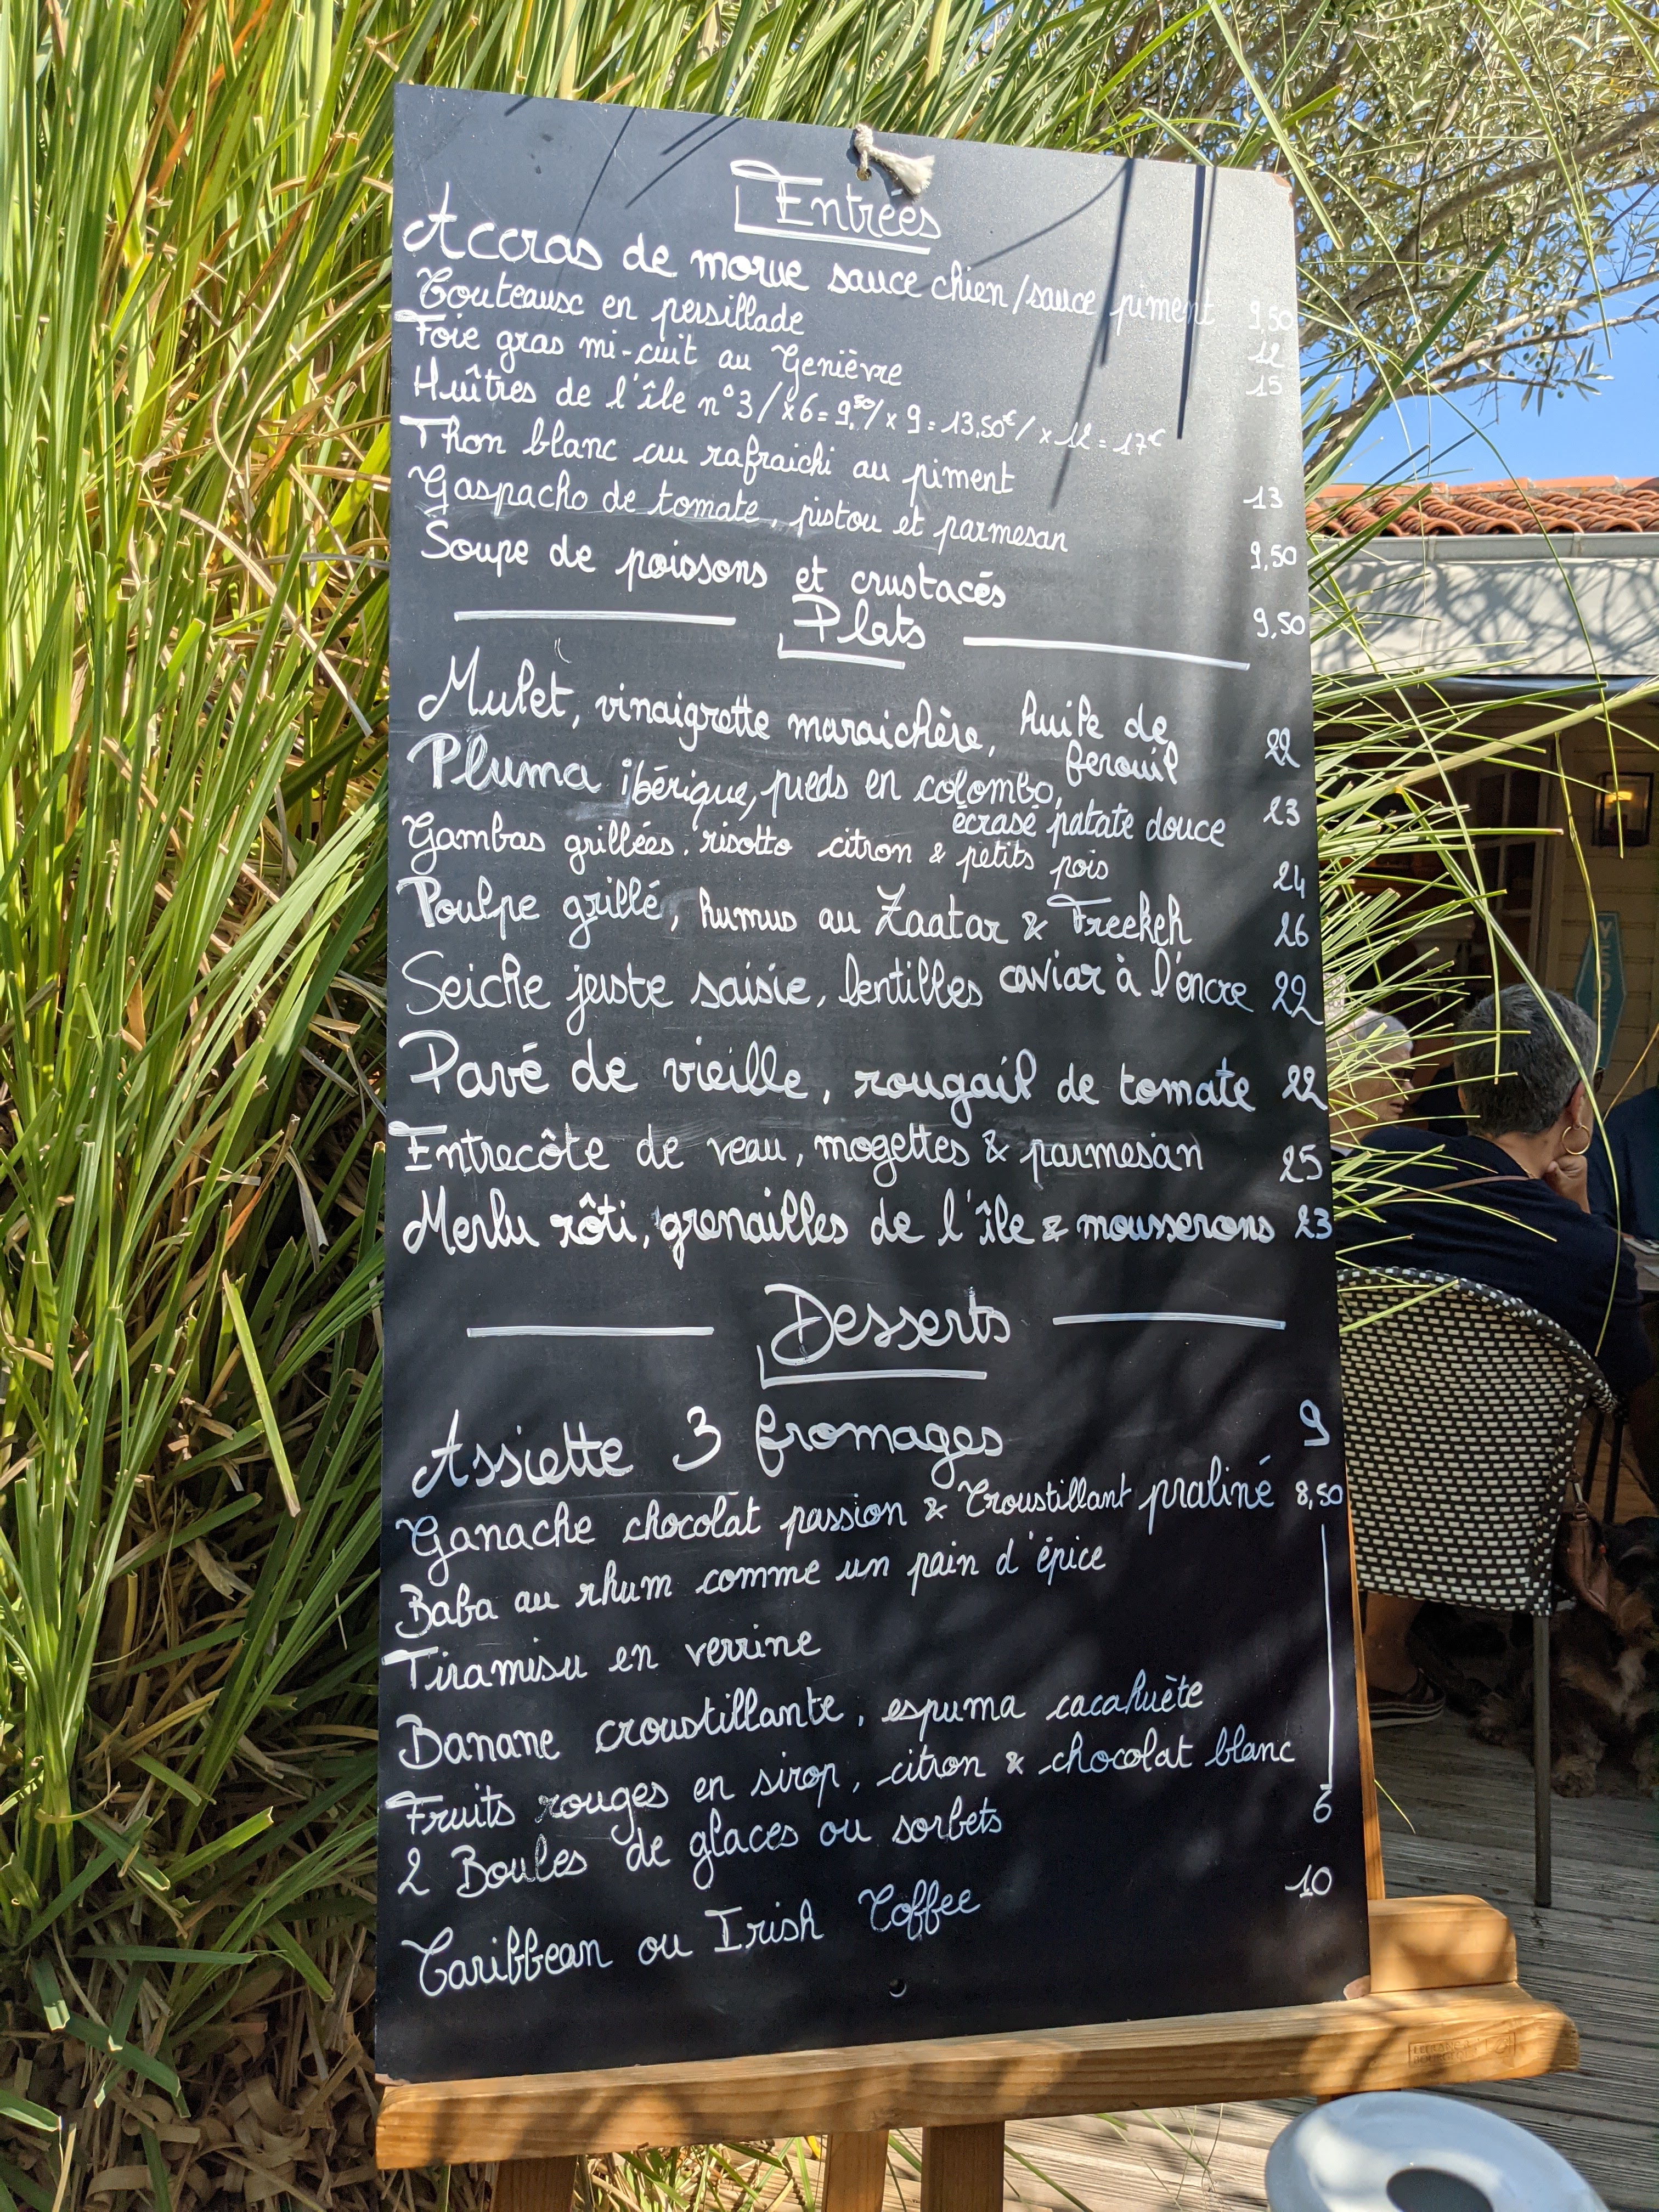 Entrées
Accras de morue sauce chien/sauce piment 9,50
Couteaux en persillade 12
Foie gras mi-cuit au Genièvre 15
Huîtres de l'île n°3 / x6 = 9,50 / x 9 = 13,50€ / x 12 = 17€
Thon blanc cru rafraichi au piment 13
Gaspacho de tomate, pistou et parmesan 9,50
Soupe de poissons et crustacés 9,50
Plats
Mulet, vinaigrette maraichère, huile de
fenouil 22
Pluma ibérique, pieds en colombo,
écrasé patate douce 23
Gambas grillées, risotto citron & petits pois 24
Poulpe grillé, humus au Zaatar & Freekeh 26
Seiche juste saisie, lentilles caviar à l'encre 22
Pavé de vieille, rougail de tomate 22
Entrecôte de veau, mogettes & parmesan 25
Merlu rôti, grenailles de l'île & mousserons 23
Desserts
Assiette 3 fromages 9
Ganache chocolat passion & Croustillant praliné 8,50
Baba au rhum comme un pain d'épice
Tiramisu en verrine
Banane croustillante, espuma cacahuète
Fruits rouges en sirop, citron & chocolat blanc
2 Boules de glaces ou sorbets 6
Caribbean ou Irish Coffee 10